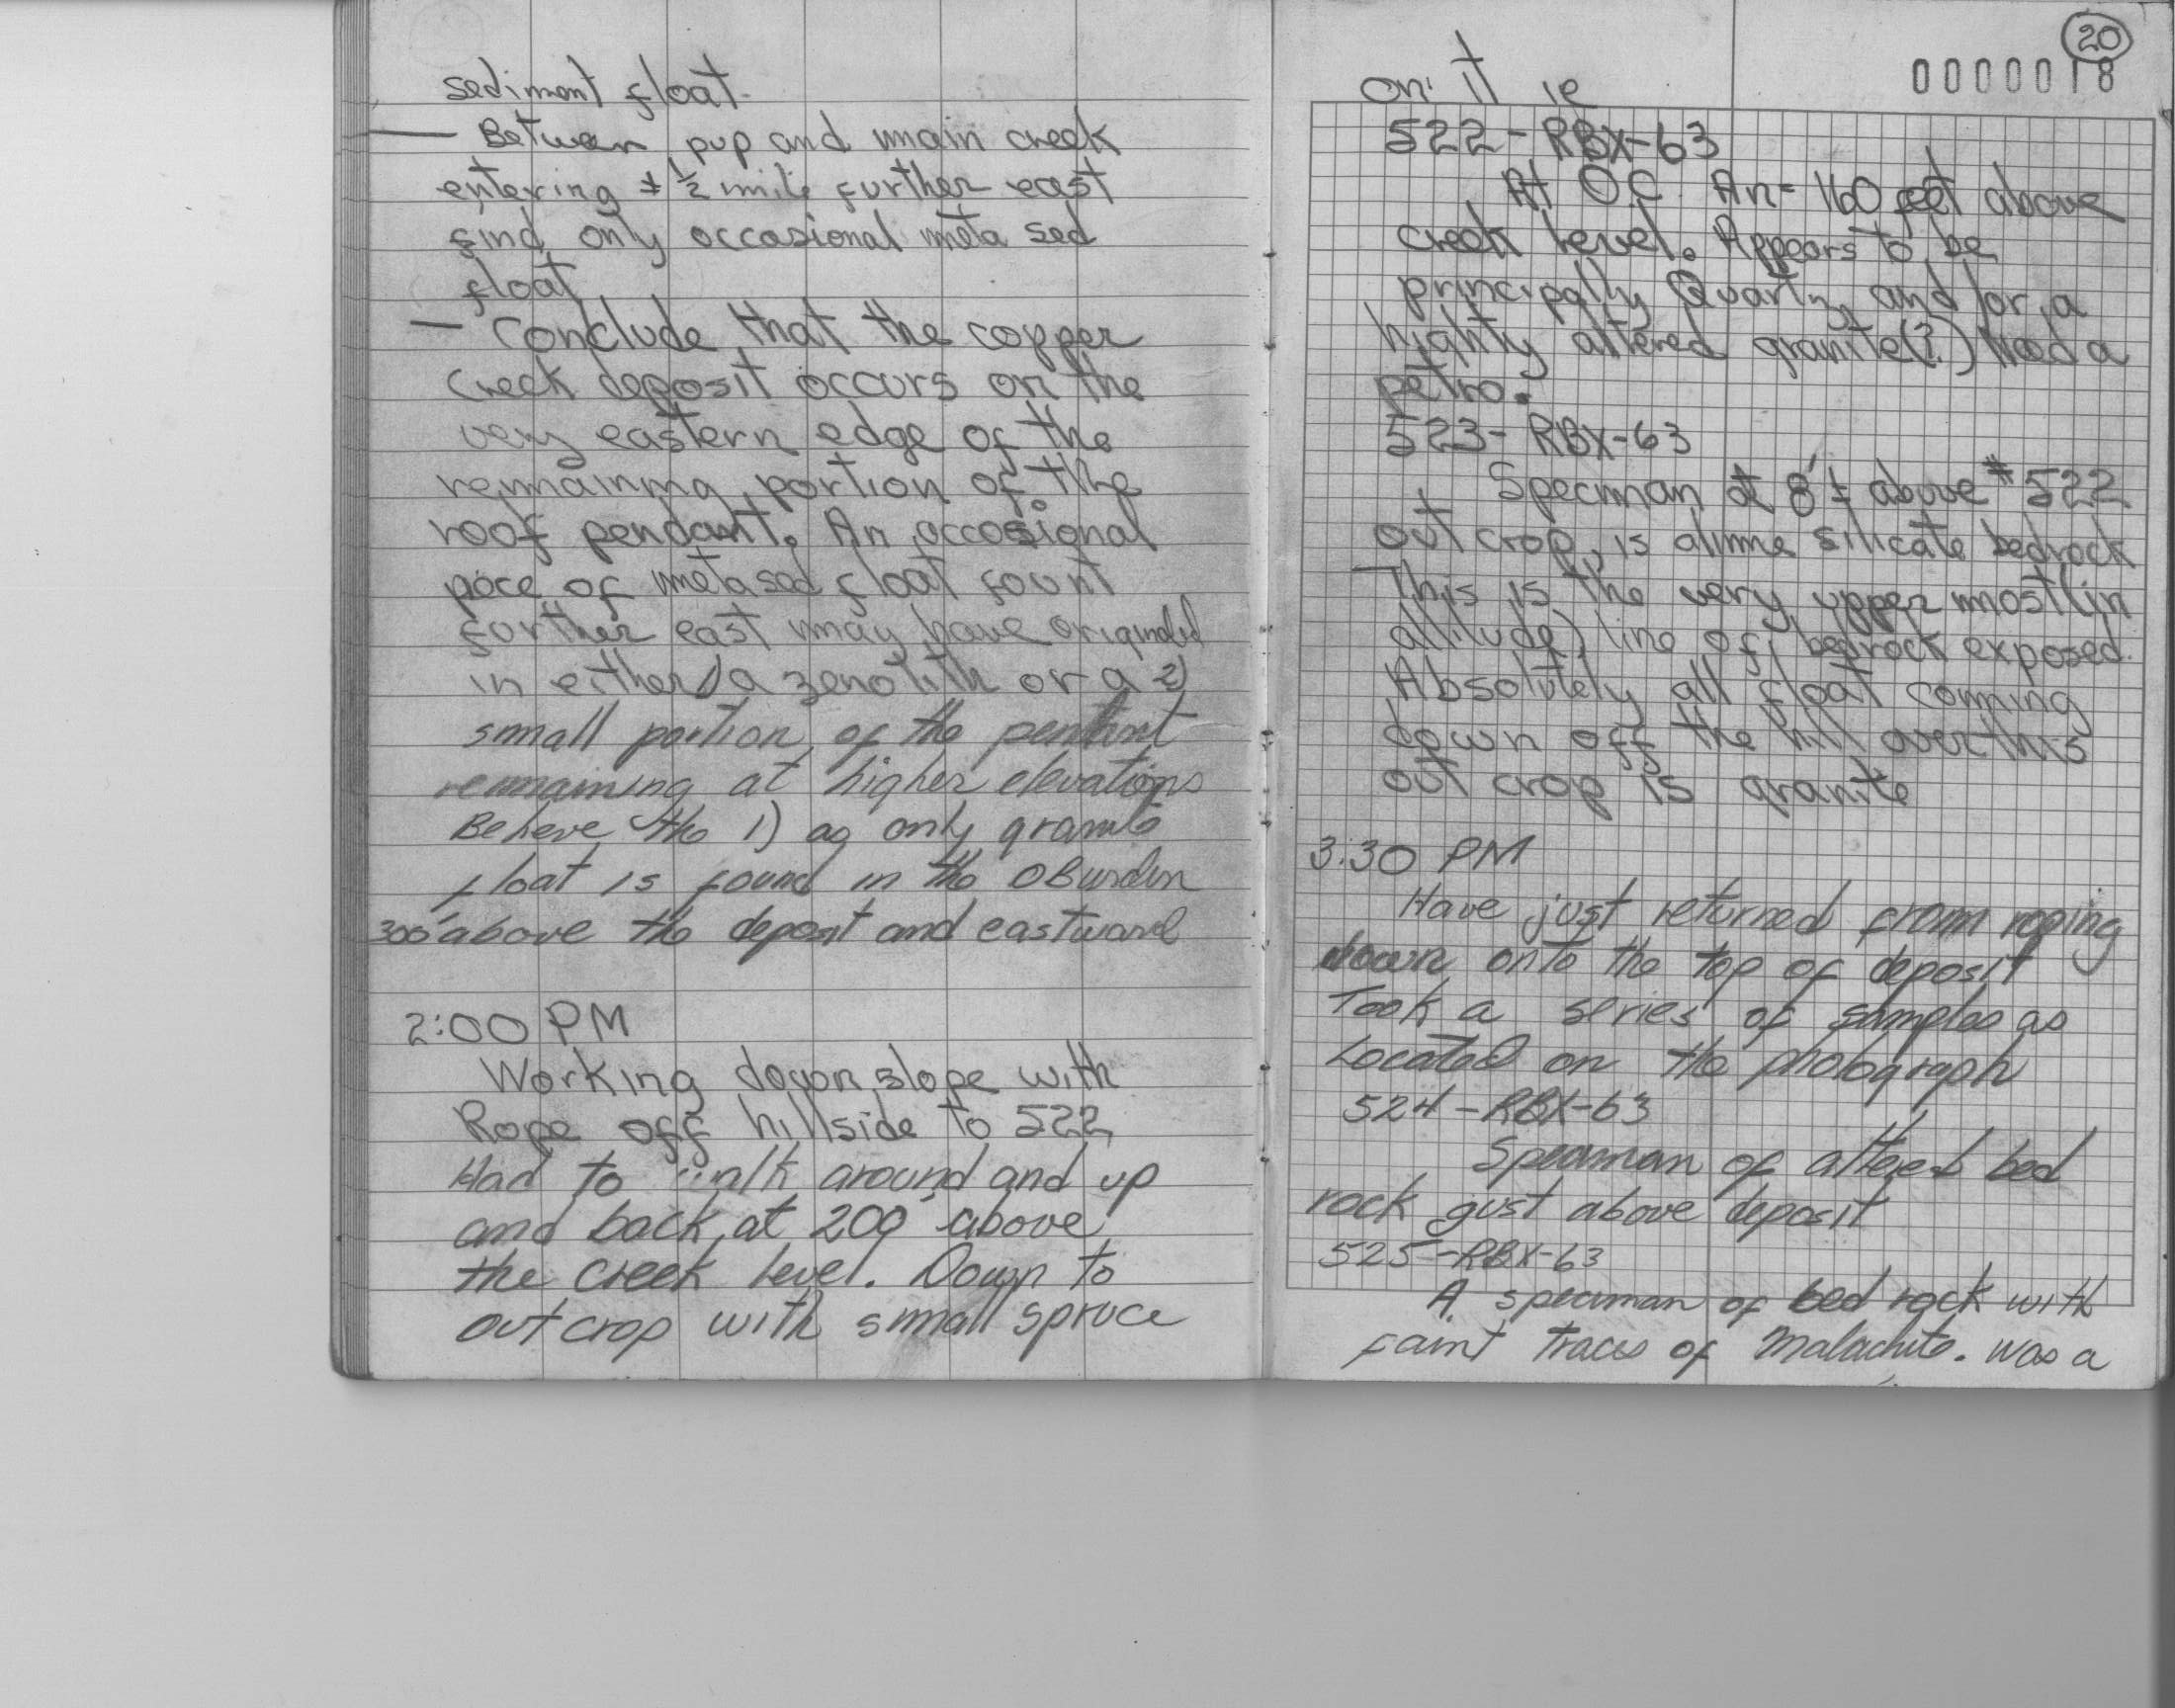 sediment float.
— Between pup and main creek
entering ± 1/2 mile further east
find only occasional meta sed
float
— Conclude that the copper
creek deposit occurs on the
very eastern edge of the
remaining portion of the
roof pendant. An occosional
pece of metased float fount
further east may have originated
in either 1) a zenolith or a 2)
small portion of the pendant
remaining at higher elevations
Believe the 1) as only granite
float is found in the OBurden
300' above the deposit and eastward
2:00 PM
Working down slope with
Rope off hillside to 522
Had to walk around and up
and back at 200' above
the creek level. Down to
out crop with small spruce
20
0000018
on it ie
522-RBX-63
At OC An= 160 feet above
creek level. Appears to be
principally Quartz and/or a
highly altered granite(?) Need a
petro.
523-RBX-63
Specman at 8'± above #522
out crop, is a lime silicate bedrock
This is the very upper most (in
altitude) line of bedrock exposed.
Absolutely all float coming
down off the hill over this
out crop is granite
3:30 PM
Have just returned from roping
down onto the top of deposit
Took a series of samples as
Located on the photograph
524-RBX-63
Specman of altered bed
rock gust above deposit
525-RBX-63
A specman of bed rock with
faint traces of Malachite. Was a